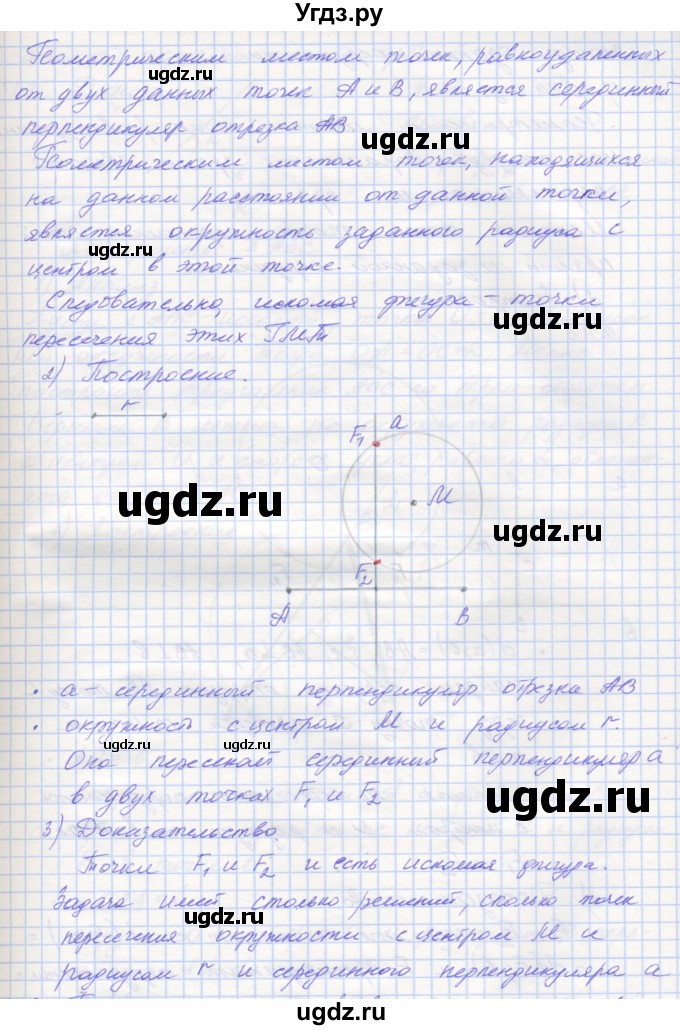 Угдз.ру
Геометрическим местом точек, равноудаленных
от двух данных точек A и B, является серединный
перпендикуляр отрезка AB.
Геометрическим местом точек, находящихся
на данном расстоянии от данной точки,
является окружность заданного радиуса с
центром в этой точке.
Следовательно, искомая фигура – точки
пересечения этих ГМТ.
2) Построение.
r
a
F₁
M
F₂
A
B
· a – серединный перпендикуляр отрезка AB
· окружность с центром M и радиусом r.
Она пересекает серединный перпендикуляр a
в двух точках F₁ и F₂
3) Доказательство.
Точки F₁ и F₂ и есть искомая фигура.
Задача имеет столько решений, сколько точек
пересечения окружности с центром M и
радиусом r и серединного перпендикуляра a
ugdz.ru
ugdz.ru
ugdz.ru
ugdz.ru
ugdz.ru
ugdz.ru
ugdz.ru
ugdz.ru
ugdz.ru
ugdz.ru
ugdz.ru
ugdz.ru